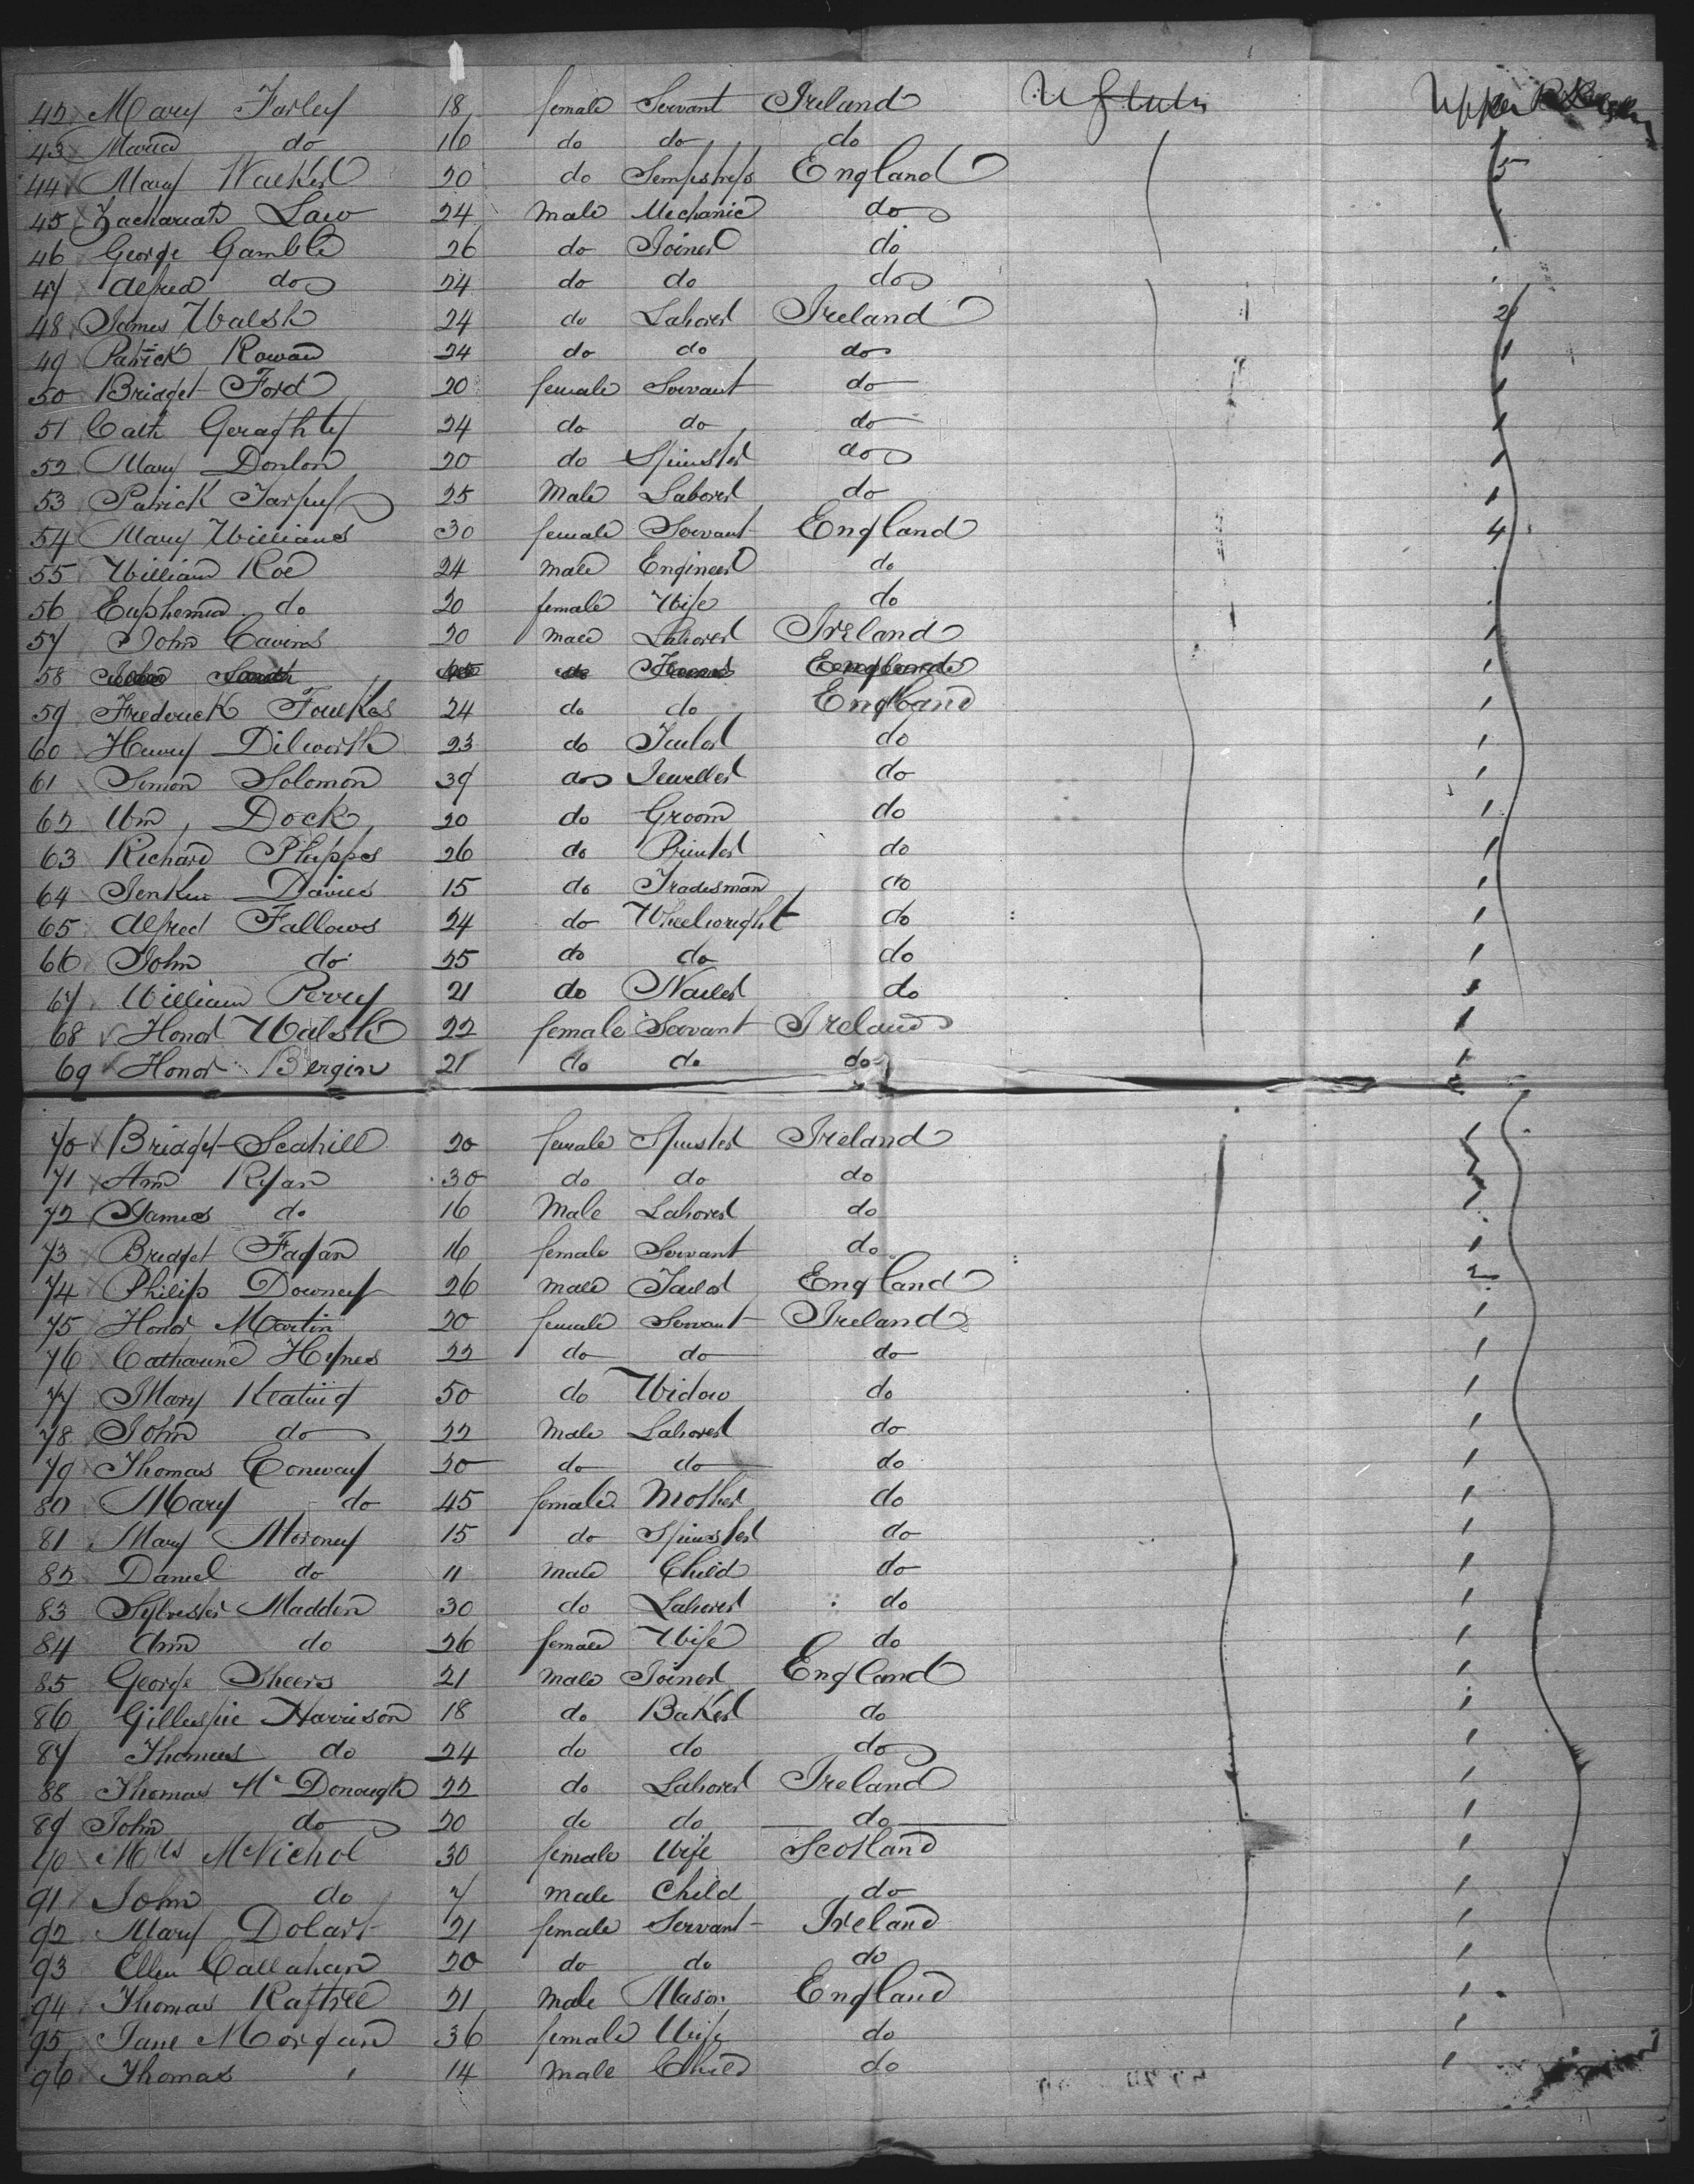 42 Mary Farley 18 female Servant Ireland U States Upper
43 Maria do 16 do do do
44 Mary Walker 20 do Sempstress England 5
45 Zachariah Law 24 male Mechanic do
46 George Gamble 26 do Joiner do
47 Alfred do 24 do do do
48 James Walsh 24 do Laborer Ireland 2
49 Patrick Rowan 24 do do do 1
50 Bridget Ford 20 female Servant do 1
51 Cath Geraghty 24 do do do 1
52 Mary Donlon 20 do Spinster do 1
53 Patrick Tarpey 25 Male Laborer do 1
54 Mary Williams 30 female Servant England 4
55 William Roe 24 male Engineer do
56 Euphemia do 20 female Wife do
57 John Cavins 20 male Laborer Ireland 1
58 John Smith England 1
59 Frederick Foulkes 24 do do England 1
60 Henry Dilworth 23 do Tailor do 1
61 Simon Solomon 39 do Jeweller do 1
62 Wm Dock 20 do Groom do 1
63 Richard Phippes 26 do Printer do 1
64 Jenkin Davies 15 do Tradesman do 1
65 Alfred Fallows 24 do Wheelwright do 1
66 John do 25 do do do 1
67 William Perry 21 do Nailer do 1
68 Honor Walsh 22 female Servant Ireland 1
69 Honor Bergin 21 do do do 1
70 Bridget Scahill 20 female Spinster Ireland 1
71 Ann Ryan 30 do do do
72 James do 16 Male Laborer do 1
73 Bridget Fagan 16 female Servant do 1
74 Philip Downey 26 male Tailor England 2
75 Honor Martin 20 female Servant Ireland 1
76 Catharine Hynes 22 do do do 1
77 Mary Keating 50 do Widow do 1
78 John do 22 Male Laborer do 1
79 Thomas Conway 20 do do do 1
80 Mary do 45 female Mother do 1
81 Mary Moroney 15 do Spinster do 1
82 Daniel do 11 male Child do 1
83 Sylvester Madden 30 do Laborer do 1
84 Ann do 26 female Wife do 1
85 George Sheers 21 male Joiner England 1
86 Gillespie Harrison 18 do Baker do 1
87 Thomas do 24 do do do 1
88 Thomas Mc Donough 22 do Laborer Ireland 1
89 John do 20 do do do 1
90 Mrs McNichol 30 female Wife Scotland 1
91 John do 7 male Child do 1
92 Mary Dolart 21 female Servant Ireland 1
93 Ellen Callahan 20 do do do 1
94 Thomas Raftree 21 male Mason England 1
95 Jane Morgan 36 female Wife do 1
96 Thomas " 14 male Child do 1